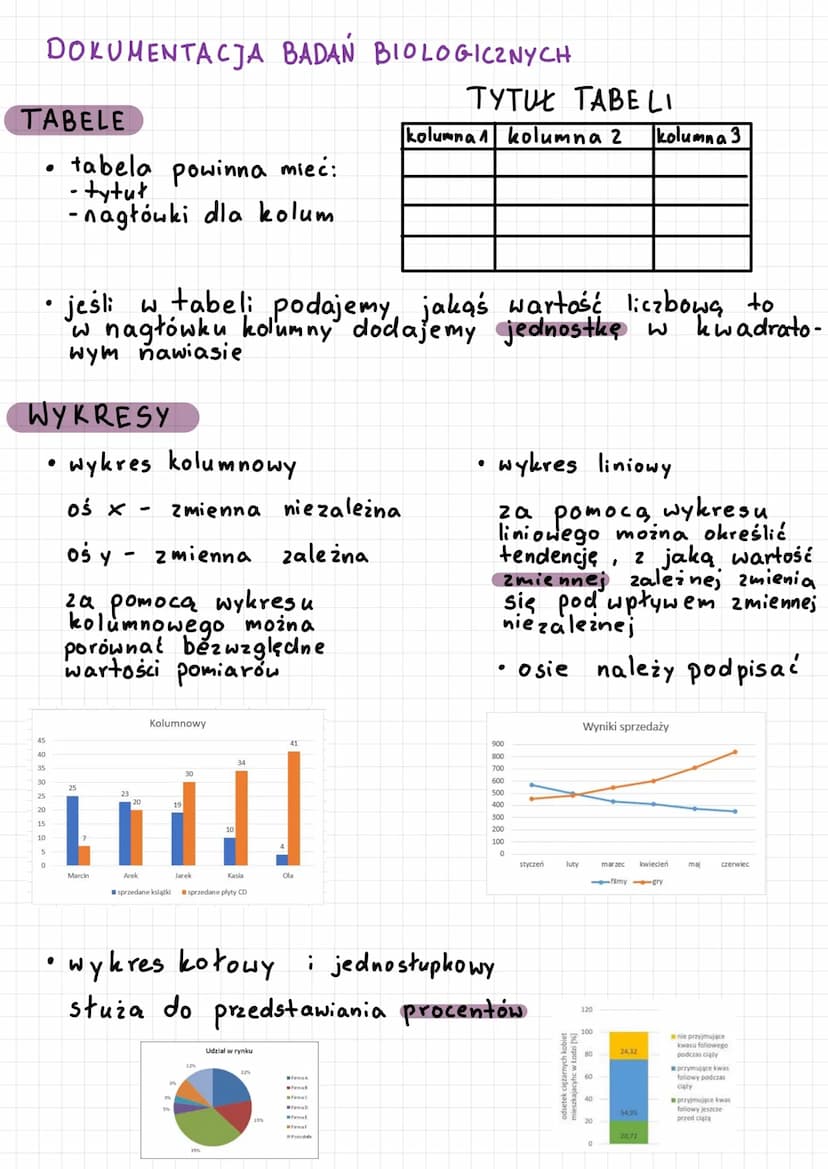 DOKUMENTACJA BADAŃ BIOLOGICZNYCH
TABELE
• tabela powinna mieć:
- tytuł
- nagłówki dla kolum
TYTUŁ TABELI
kolumna 1 kolumna 2 kolumna 3
• jeśli w tabeli podajemy jakąś wartość liczbową to
w nagłówku kolumny dodajemy jednostkę w kwadrato-
wym nawiasie
WYKRESY
• wykres kolumnowy
oś x - zmienna niezależna
oś y - zmienna zależna
za pomocą wykresu
kolumnowego można
porównać bezwzględne
wartości pomiarów
• wykres liniowy
za pomocą wykresu
liniowego można określić
tendencję, z jaką wartość
zmiennej zależnej zmienia
się pod wpływem zmiennej
niezależnej
• osie należy podpisać
Kolumnowy
45
40
35
30
25
20
15
10
5
0
25 7 23 20 19 30 10 34 4 41
Marcin Arek Jarek Kasia Ola
sprzedane książki sprzedane płyty CD
Wyniki sprzedaży
900
800
700
600
500
400
300
200
100
0
styczeń luty marzec kwiecień maj czerwiec
filmy gry
• wykres kołowy i jednosłupkowy
służa do przedstawiania procentów
Udział w rynku
120
100
80
60
40
20
0
odsetek ciężarnych kobiet
mieszkających w Łodzi [%]
24,32
54,95
20,72
nie przyjmujące
kwasu foliowego
podczas ciąży
przyjmujące kwas
foliowy podczas
ciąży
przyjmujące kwas
foliowy jeszcze
przed ciążą